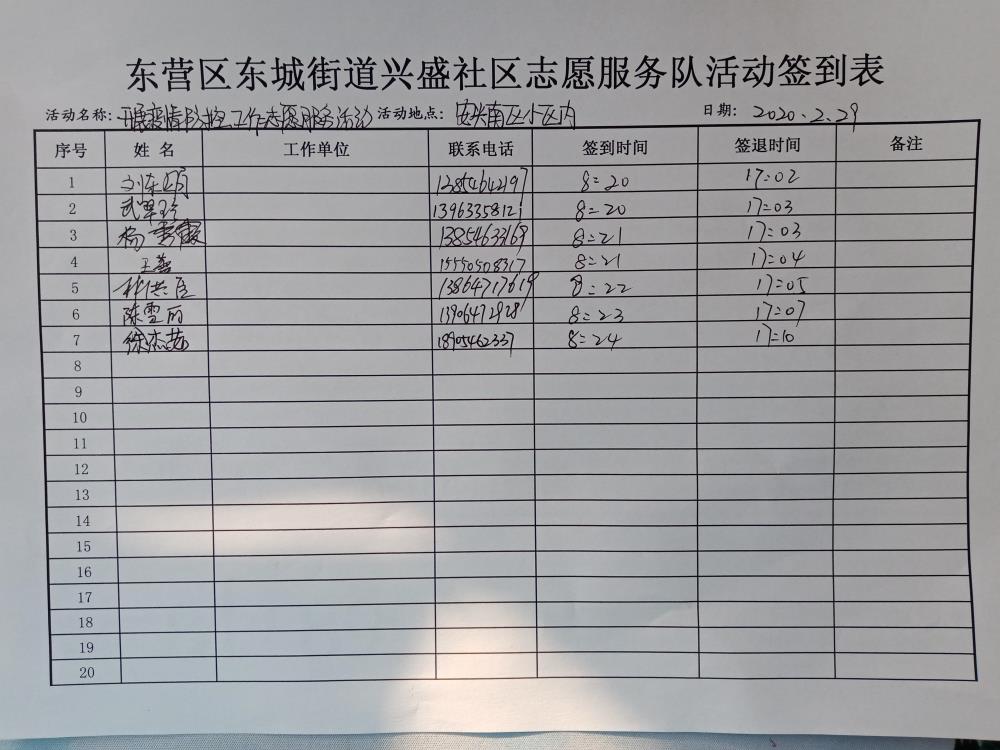 东营区东城街道兴盛社区志愿服务队活动签到表
活动名称:开展疫情防控工作志愿服务活动 活动地点:安兴南区小区内 日期: 2020.2.29
序号 姓名 工作单位 联系电话 签到时间 签退时间 备注
1 刘东 13854642197 8:20 17:02
2 武翠玲 13963358121 8:20 17:03
3 杨秀霞 13854633169 8:21 17:03
4 王燕 15550508317 8:21 17:04
5 13864717619 8:22 17:05
6 陈雪丽 13906472928 8:23 17:07
7 徐杰茹 18905462337 8:24 17:10
8
9
10
11
12
13
14
15
16
17
18
19
20